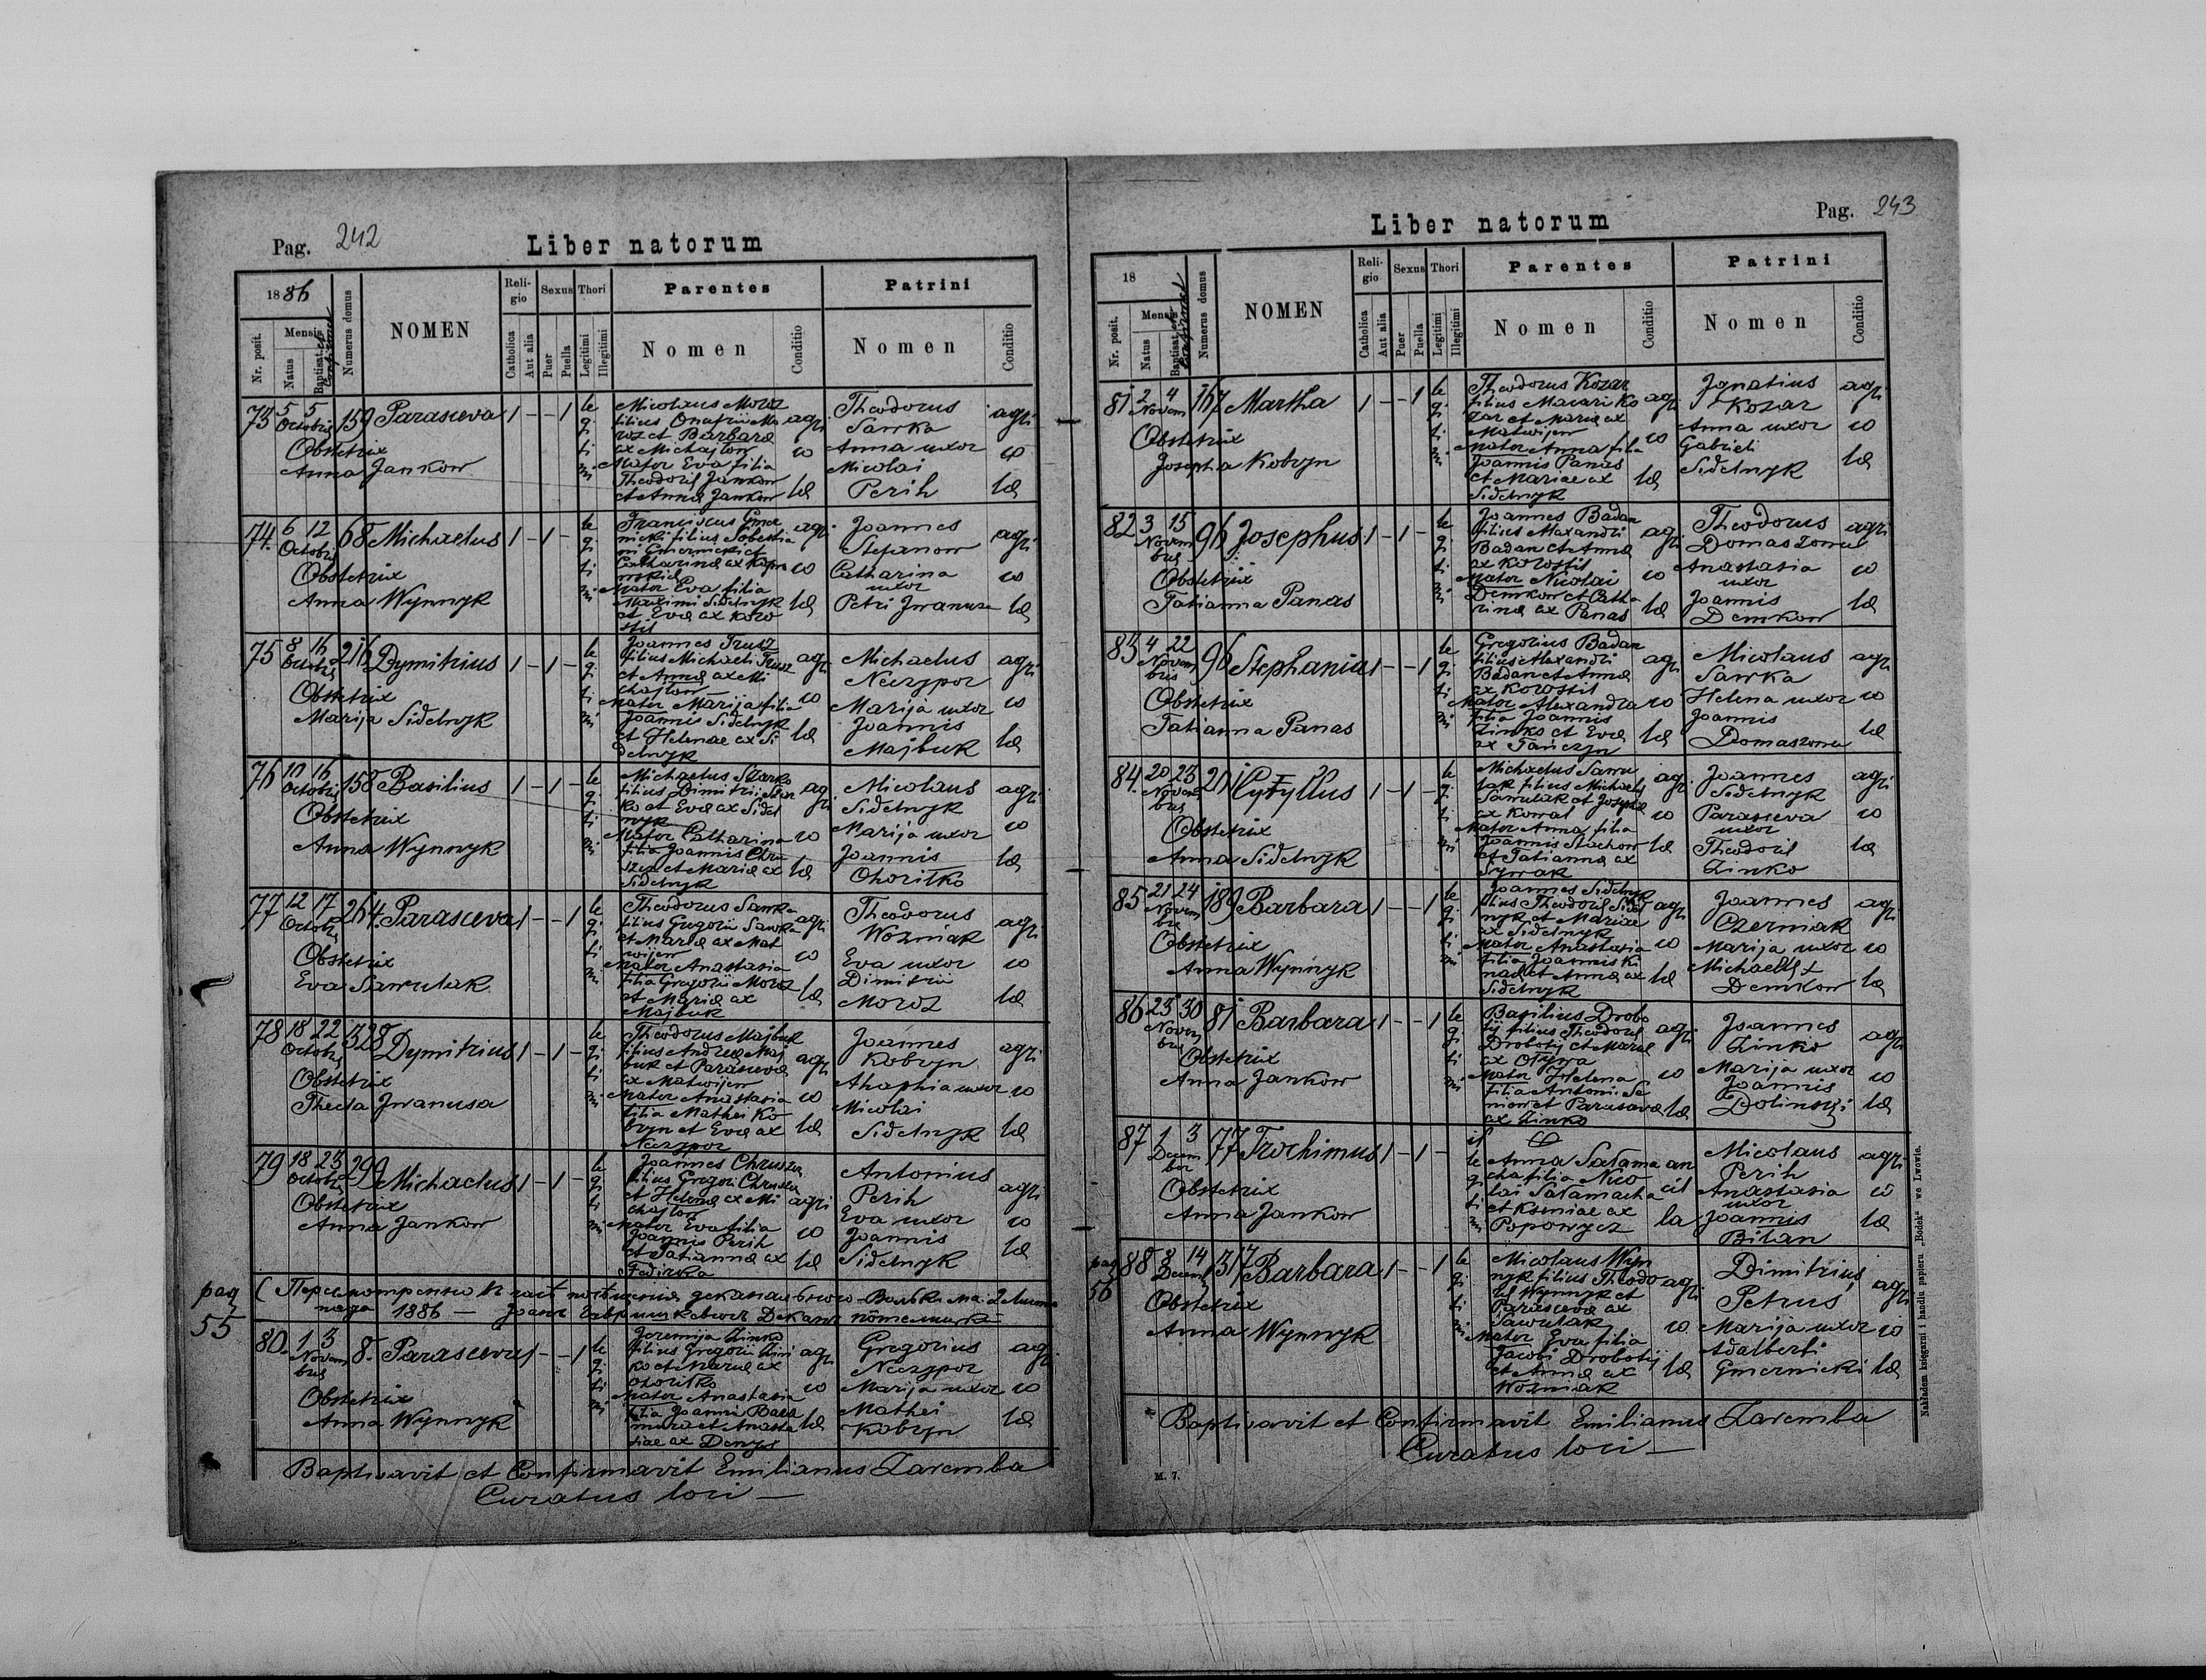 Pag. 242
Liber natorum
1886
Nr. posit.
Mensis
Natus
Baptisat. et Confirmat
Numerus domus
NOMEN
Religio
Catholica
Aut alia
Sexus
Puer
Puella
Thori
Legitimi
Illegitimi
Parentes
Nomen
Conditio
Patrini
Nomen
Conditio
73 5 5 Octobris 159 Parasceva 1 - - 1 legitimi
Obstetrix
Anna Jankow
Nicolaus Moroz
filius Onufrii Mo
roz et Barbarae
ex Michajlow
Mater Eva filia
Theodori Jankow
et Annae Jankow
agricolae
Theodorus
Sawka
Anna uxor
Nicolai
Perih
agricolae
74. 6 12 Octobris 68 Michaelus 1 - 1 - legitimi
Obstetrix
Anna Wynnyk
Franciscus Gmer
nicki filius Sobestia
ni Gmernicki et
Catharinae ex
Mater Eva filia
Maximi Sidelnyk
et Evae ex Koro
stil
agricolae
Joannes
Stefanow
Catharina
uxor
Petri Iwanusa
agricolae
75 8 16 Octobris 216 Dymitrius 1 - 1 - legitimi
Obstetrix
Marija Sidelnyk
Joannes Trusz
filius Michaeli Trusz
et Annae ex Mi
chajlow
Mater Marija filia
Joannis Sidelnyk
et Helenae ex Si
delnyk
agricolae
Michaelus
Neczypor
Marija uxor
Joannis
Majbuk
agricolae
76 10 16 Octobris 158 Basilius 1 - 1 - legitimi
Obstetrix
Anna Wynnyk
Michaelus Szarko
filius Dimitrii Szar
ko et Evae ex Sidel
nyk
Mater Catharina
filia Joannis Chru
szcz et Mariae ex
Sidelnyk
agricolae
Nicolaus
Sidelnyk
Marija uxor
Joannis
Ohoritko
agricolae
77 12 17 Octobris 264. Parasceva 1 - - 1 legitimi
Obstetrix
Eva Sawulak
Theodorus Sawka
filius Gregorii Sawka
et Mariae ex Mat
wijew
Mater Anastasia
filia Gregorii Moroz
et Mariae ex
Majbuk
agricolae
Theodorus
Wozniak
Eva uxor
Dimitrii
Moroz
agricolae
78 18 22 Octobris 328 Dymitrius 1 - 1 - legitimi
Obstetrix
Thecla Iwanusa
Theodorus Majbuk
filius Andreae Maj
buk et Parascevae
ex Matwijew
Mater Anastasia
filia Mathei Ko
bryn et Evae ex
Neczypor
agricolae
Joannes
Kobryn
Ahaphia uxor
Nicolai
Sidelnyk
agricolae
79 18 23 Octobris 299 Michaelus 1 - 1 - legitimi
Obstetrix
Anna Jankow
Joannes Chruszcz
filius Gregori Chruszcz
et Helenae ex Mi
chajlow
Mater Eva filia
Joannis Perih
et Tatiannae ex
Fedirka
agricolae
Antonius
Perih
Eva uxor
Joannis
Sidelnyk
agricolae
pag
55
1886
80. 1 3 Novembris 8. Parasceva 1 - - 1 legitimi
Obstetrix
Anna Wynnyk
Jeremija Zinko
filius Gregorii Zin
ko et Mariae ex
Ohoritko
Mater Anastasia
filia Joannis Bara
nura et Anasta
siae ex Denys
agricolae
Gregorius
Neczypor
Marija uxor
Mathei
Kobryn
agricolae
Baptisavit et Confirmavit Emilianus Zaremba
Curatus loci —
Pag. 243
Liber natorum
18
Nr. posit.
Mensis
Natus
Baptisat. et Confirmat
Numerus domus
NOMEN
Religio
Catholica
Aut alia
Sexus
Puer
Puella
Thori
Legitimi
Illegitimi
Parentes
Nomen
Conditio
Patrini
Nomen
Conditio
81 2 4 Novem 167 Martha 1 - - 1 legitimi
Obstetrix
Josepha Kobryn
Theodorus Kozar
filius Macarii Ko
zar et Mariae ex
Matwijew
Mater Anna filia
Joannis Panas
et Mariae ex
Sidelnyk
agricolae
Ignatius
Kozar
Anna uxor
Gabrieli
Sidelnyk
agricolae
82 3 15 Novembris 96 Josephus 1 - 1 - legitimi
Obstetrix
Tatianna Panas
Joannes Badan
filius Alexandri
Badan et Annae
ex Korostil
Mater Nicolai
Demkow et Catha
rinae ex Panas
agricolae
Theodorus
Domaszowec
Anastasia
uxor
Joannis
Demkow
agricolae
83 4 22 Novembris 96 Stephania 1 - - 1 legitimi
Obstetrix
Tatianna Panas
Gregorius Badan
filius Alexandri
Badan et Annae
ex Korostil
Mater Alexandra
filia Joannis
Zinko et Evae
ex Tańczyn
agricolae
Nicolaus
Sawka
Helena uxor
Joannis
Domaszowec
agricolae
84. 20 23 Novembris 201 Cyryllus 1 - 1 - legitimi
Obstetrix
Anna Sidelnyk
Michaelus Sawu
lak filius Michaeli
Sawulak et Josephae
ex Kowal
Mater Anna filia
Joannis Stachow
et Tatiannae ex
Sywak
agricolae
Joannes
Sidelnyk
Parasceva
uxor
Theodori
Zinko
agricolae
85 21 24 Novembris 189 Barbara 1 - - 1 legitimi
Obstetrix
Anna Wynnyk
Joannes Sidelnyk
filius Theodori Sidel
nyk et Mariae
ex Sidelnyk
Mater Anastasia
filia Joannis Ki
nad et Annae ex
Sidelnyk
agricolae
Joannes
Czerniak
Marija uxor
Michaelis
Demkow
agricolae
86 23 30 Novembris 81 Barbara 1 - - 1 legitimi
Obstetrix
Anna Jankow
Basilius Drobo
tij filius Theodori
Drobotij et Mariae
ex Olijwa
Mater Helena
filia Antoni Se
niow et Parascevae
ex Zinko
agricolae
Joannes
Zinko
Marija uxor
Joannis
Dolinskyi
agricolae
87 1 3 Decembr 77 Trochimus 1 - 1 - illegitimi
Obstetrix
Anna Jankow
Anna Salama
cha filia Nico
lai Salamacha
et Kseniae ex
Popowycz
ancilla
Nicolaus
Perih
Anastasia
uxor
Joannis
Bilan
agricolae
pag
56
88 8 14 Decemb 317 Barbara 1 - - 1 legitimi
Obstetrix
Anna Wynnyk
Nicolaus Wyn
nyk filius Theodo
ri Wynnyk et
Parascevae ex
Sawulak
Mater Eva filia
Jacobi Drobotij
et Annae ex
Wozniak
agricolae
Dimitrius
Petrus
Marija uxor
Adalberti
Gmernicki
agricolae
Baptisavit et Confirmavit Emilianus Zaremba
Curatus loci —
M. 7.
Nakładem księgarni i handlu papieru „Bodek“ we Lwowie.